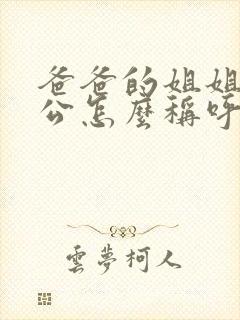 爸爸的姐姐
公怎麼稱呼
雲夢柯人